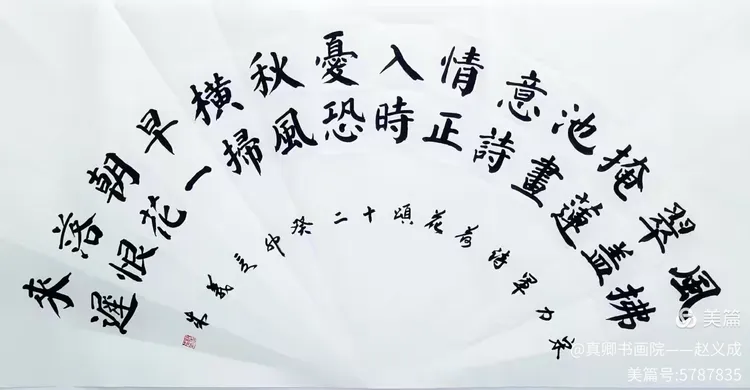 風拂
翠蓋
掩蓮
池畫
意詩
情正
入時
憂恐
秋風
橫掃
早一
朝花
落恨
來遲
力軍詩荷花頌十二癸卯夏義成
美篇
@真卿书画院——赵义成
美篇号:5787835